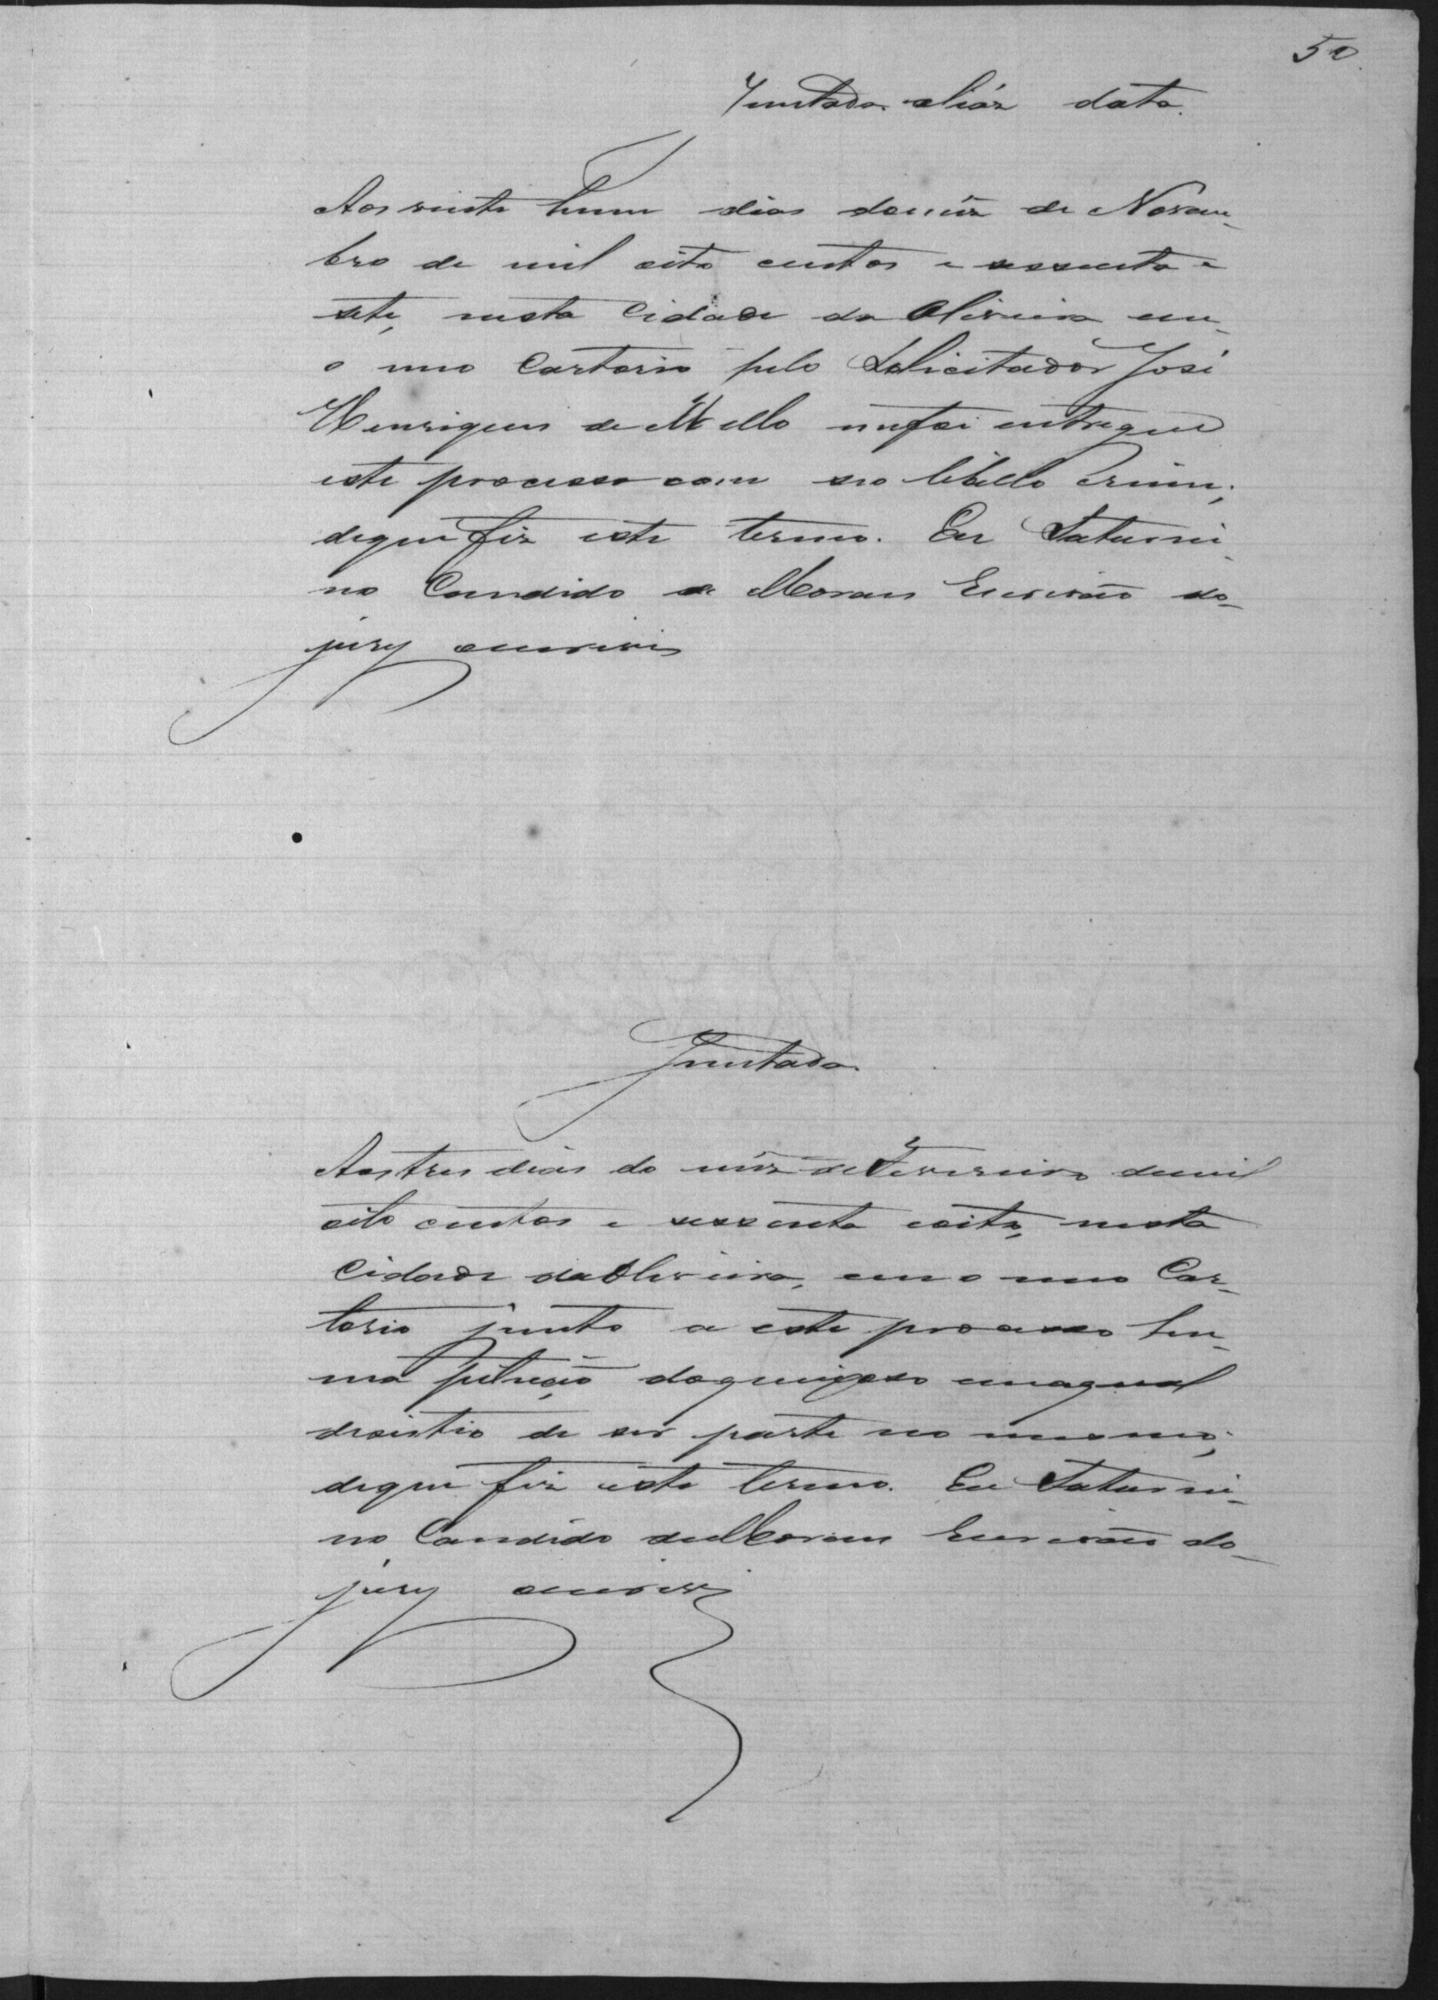 50
Juntada aliáz data.
Aos vinte hum dias do mêz de Novem-
bro de mil oito centos e sessenta e
sete, nesta Cidade da Oliveira em
o meo Cartorio pelo Solicitador José
Henriques de Mello me foi entregue
este processo com seo libello crime;
de que fiz este termo. Eu Saturni-
no Candido de Moraes Escrivão do
jury escrevi
Juntada
Aos tres dias do mêz de Fevereiro de mil
oito centos e sessenta e oito, nesta
Cidade da Oliveira, em o meo Car-
torio junto a este processo hu-
ma petição do queixoso em a qual
desistio de ser parte no mesmo;
de que fiz este termo. Eu Saturni-
no Candido de Moraes Escrivão do
jury escrevi